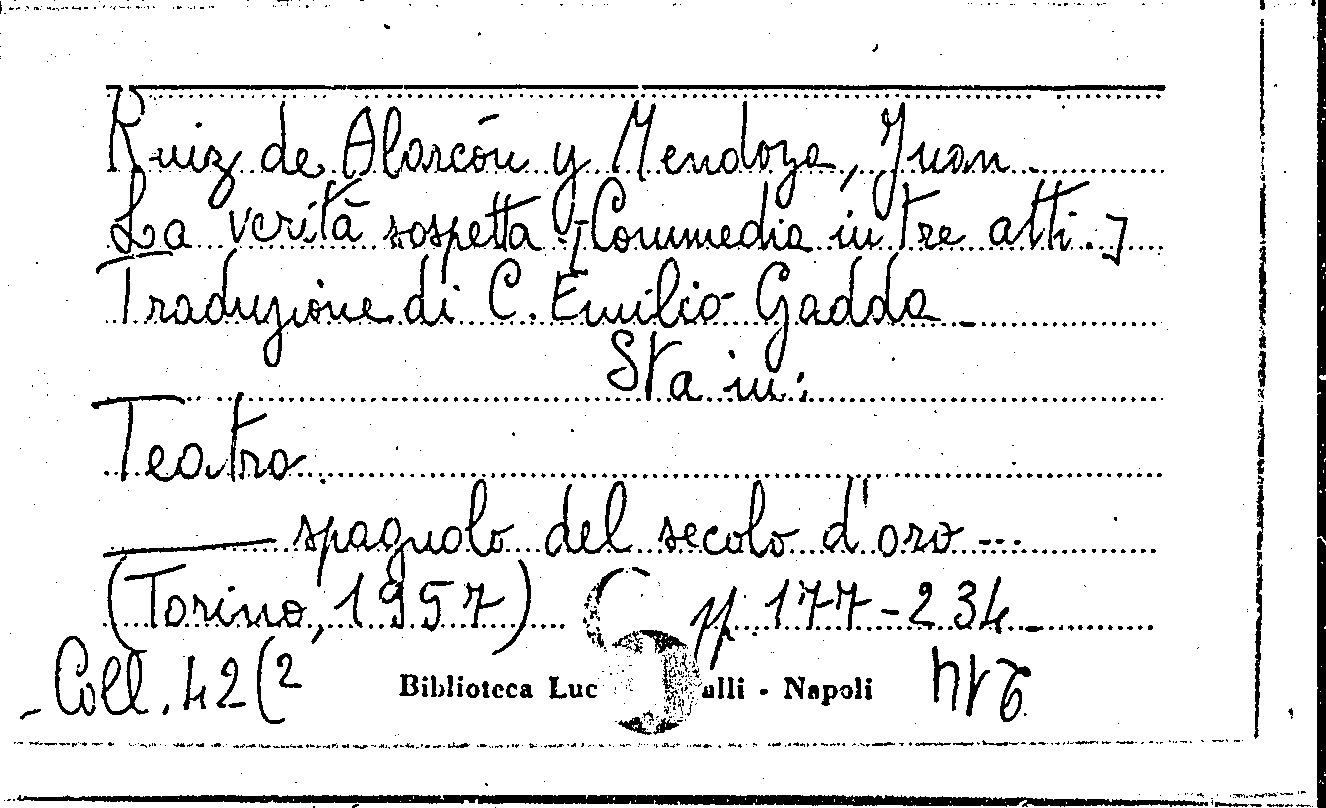 Ruiz de Alarcón y Mendoza, Juan
La verità sospetta. [Commedia in tre atti.]
Traduzione di C. Emilio Gadda
Sta in:
Teatro
—— spagnolo del secolo d'oro ...
(Torino, 1957) pp. 177-234
Coll. 42(2
Biblioteca Luc alli - Napoli